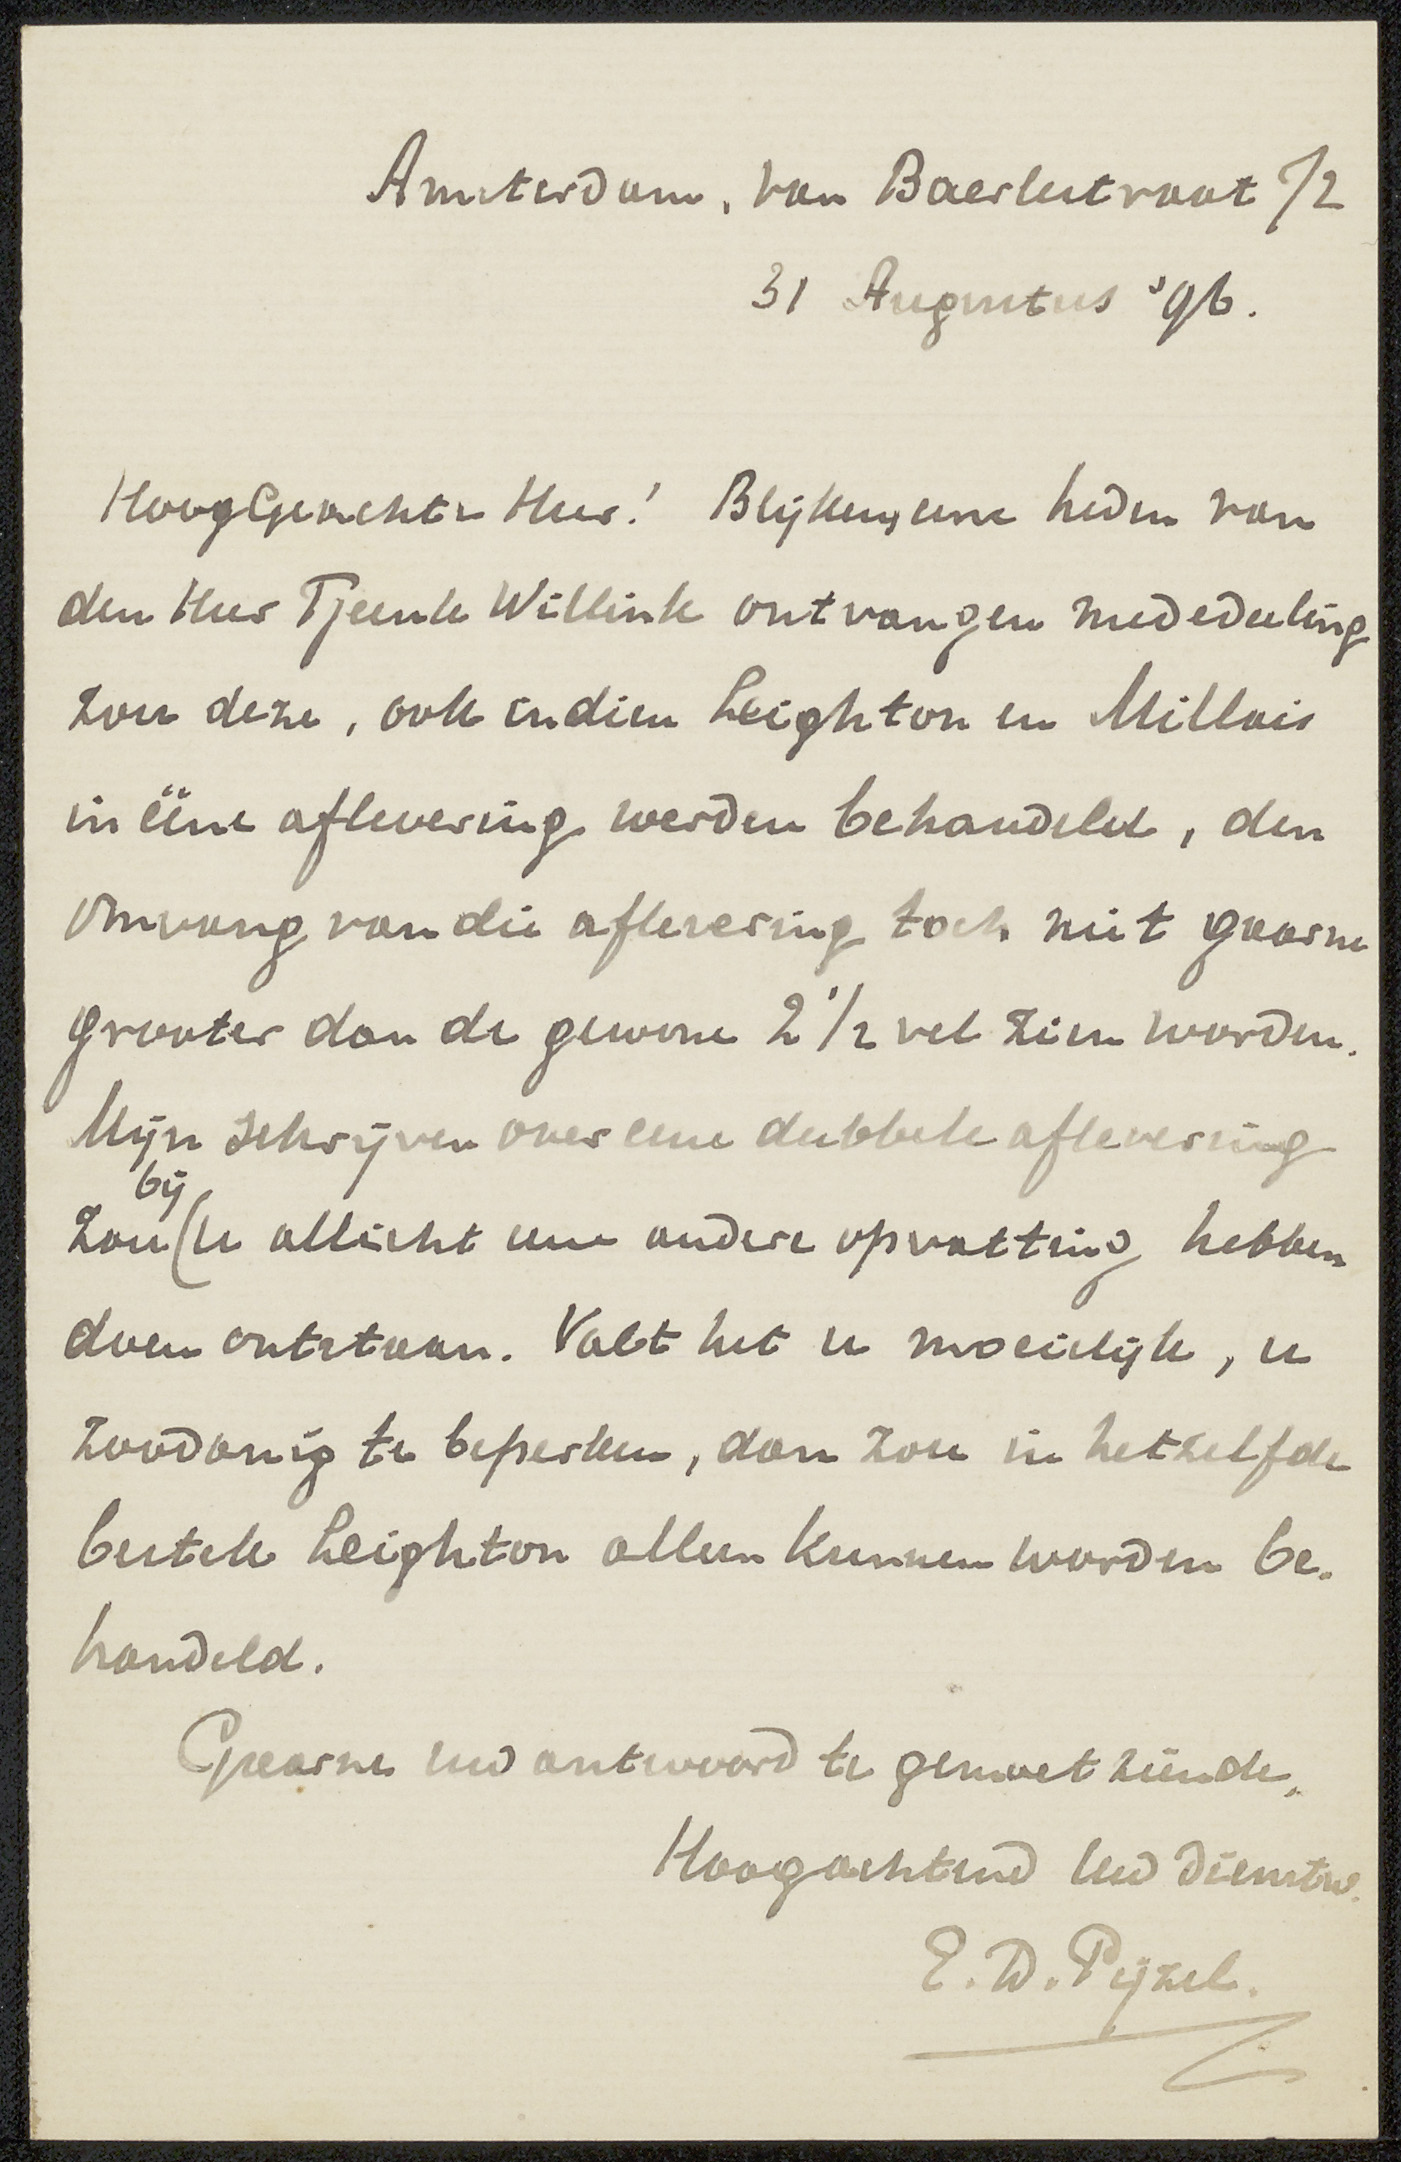 Amsterdam, van Baerlestraat 72
31 Augustus '96.
HoogGeachte Heer! Blijkens eene heden van
den Heer Tjeenk Willink ontvangen mededeeling
zou deze, ook indien Leighton en Millais
in ééne aflevering werden behandeld, den
omvang van die aflevering toch niet gaarne
grooter dan de gewone 2 1/2 vel zien worden.
Mijn schrijven over eene dubbele aflevering
bij
zou (u allicht eene andere opvatting hebben
doen ontstaan. Valt het u moeielijk, u
zoodanig te beperken, dan zou in hetzelfde
bestek Leighton alleen kunnen worden be-
handeld.
Gaarne uw antwoord te gemoet ziende,
Hoogachtend Uw dienstw.
E. D. Pijzel.